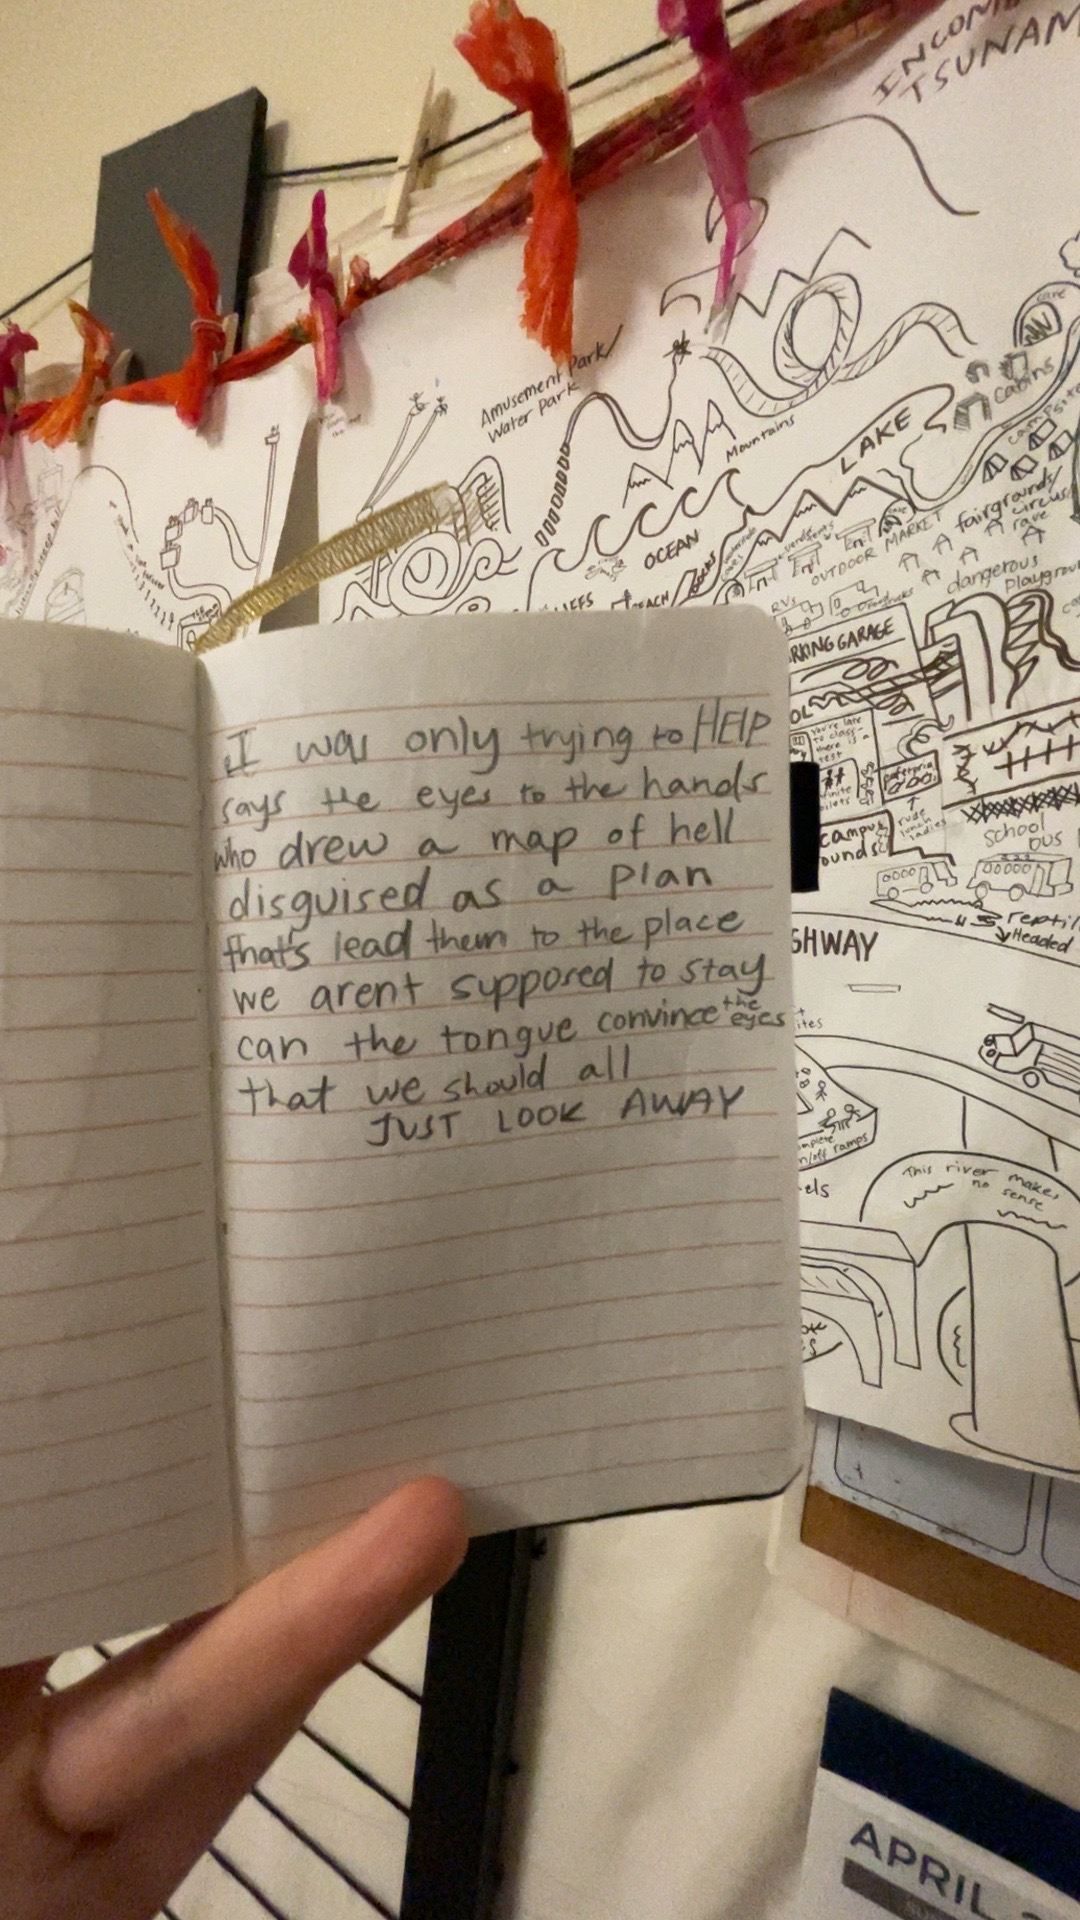 INCOM
TSUNAM
Amusement Park/
Water Park
Mountains
LAKE
cave
Cabins
campsite
OCEAN
fairgrounds/
circus/
rave
OUTDOOR MARKET
dangerous
playgroun
RVs
RKING GARAGE
You're late
to class-
there is a
test
cafeteria
rude
lunch
ladies
campus
ounds
school
bus
reptil
Headed
GHWAY
n/off ramps
els
This river makes
no sense
I was only trying to HELP
says the eyes to the hands
who drew a map of hell
disguised as a plan
that's lead them to the place
we arent supposed to stay
can the tongue convince the eyes
that we should all
JUST LOOK AWAY
APRIL